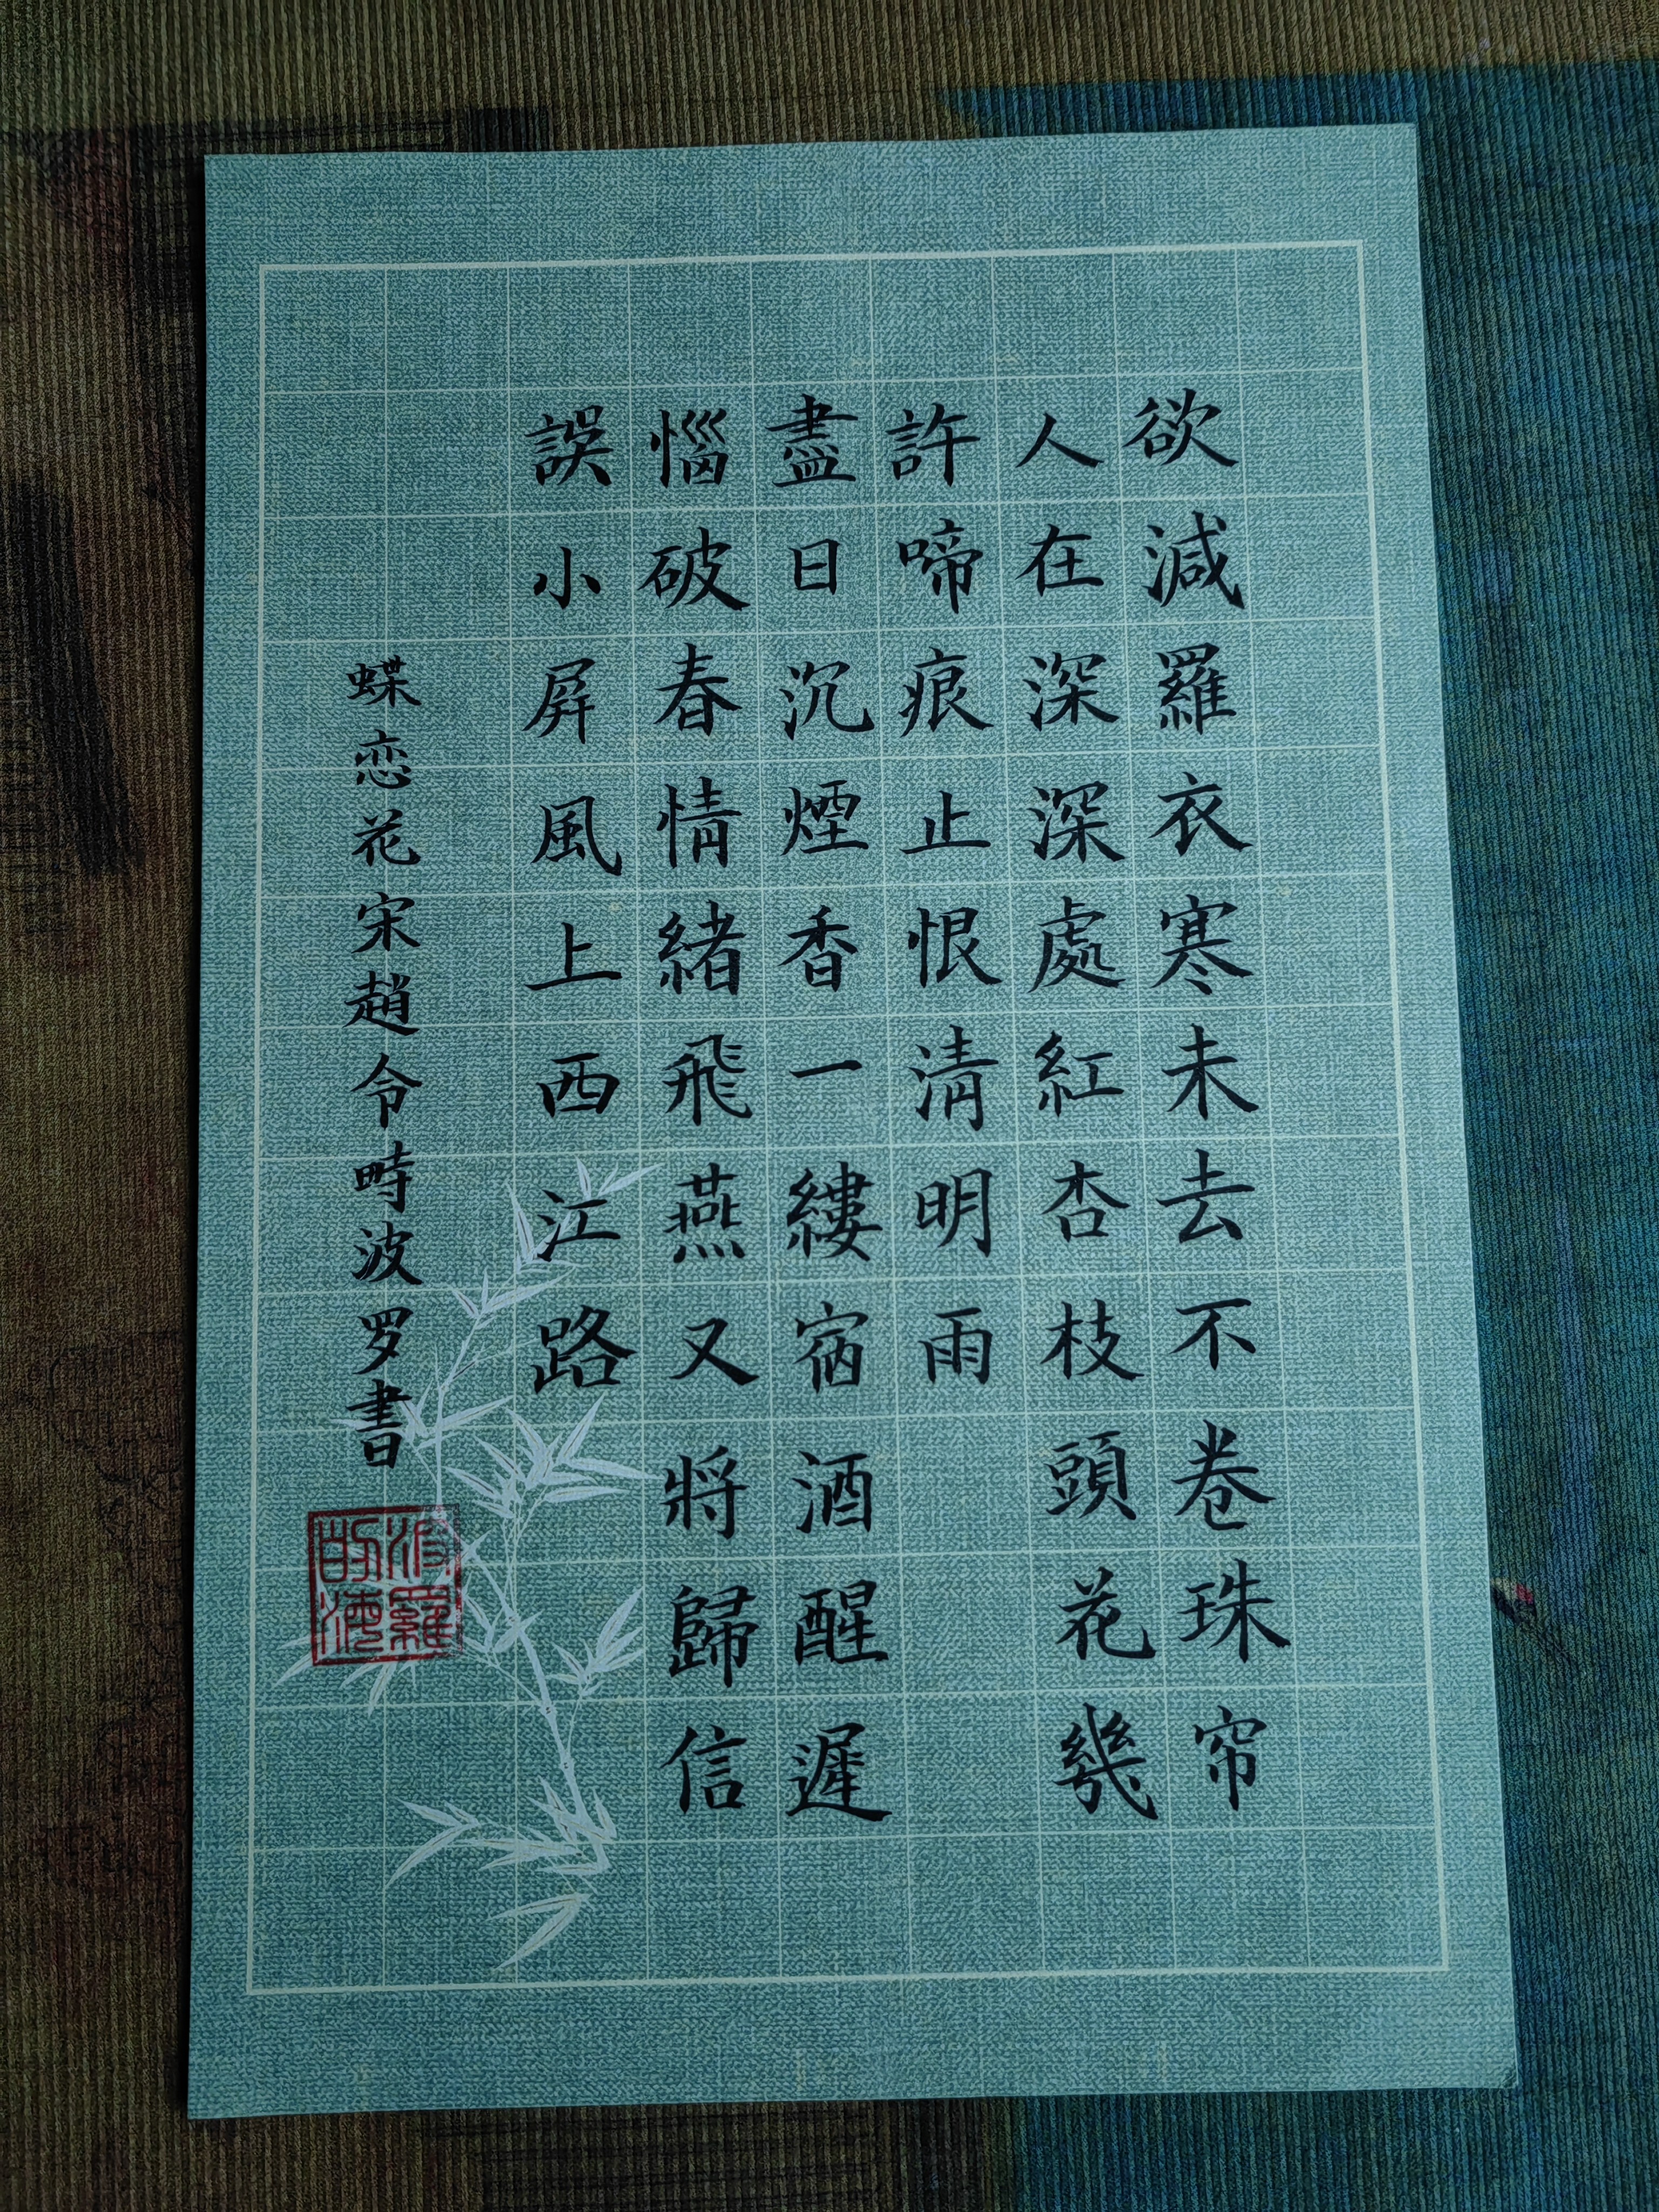 欲減羅衣寒未去不卷珠帘
人在深深處紅杏枝頭花幾
許啼痕止恨淸明雨
盡日沉煙香一縷宿酒醒遲
惱破春情緒飛燕又將歸信
誤小屛風上西江路
蝶恋花宋趙令畤波罗書
波羅的海